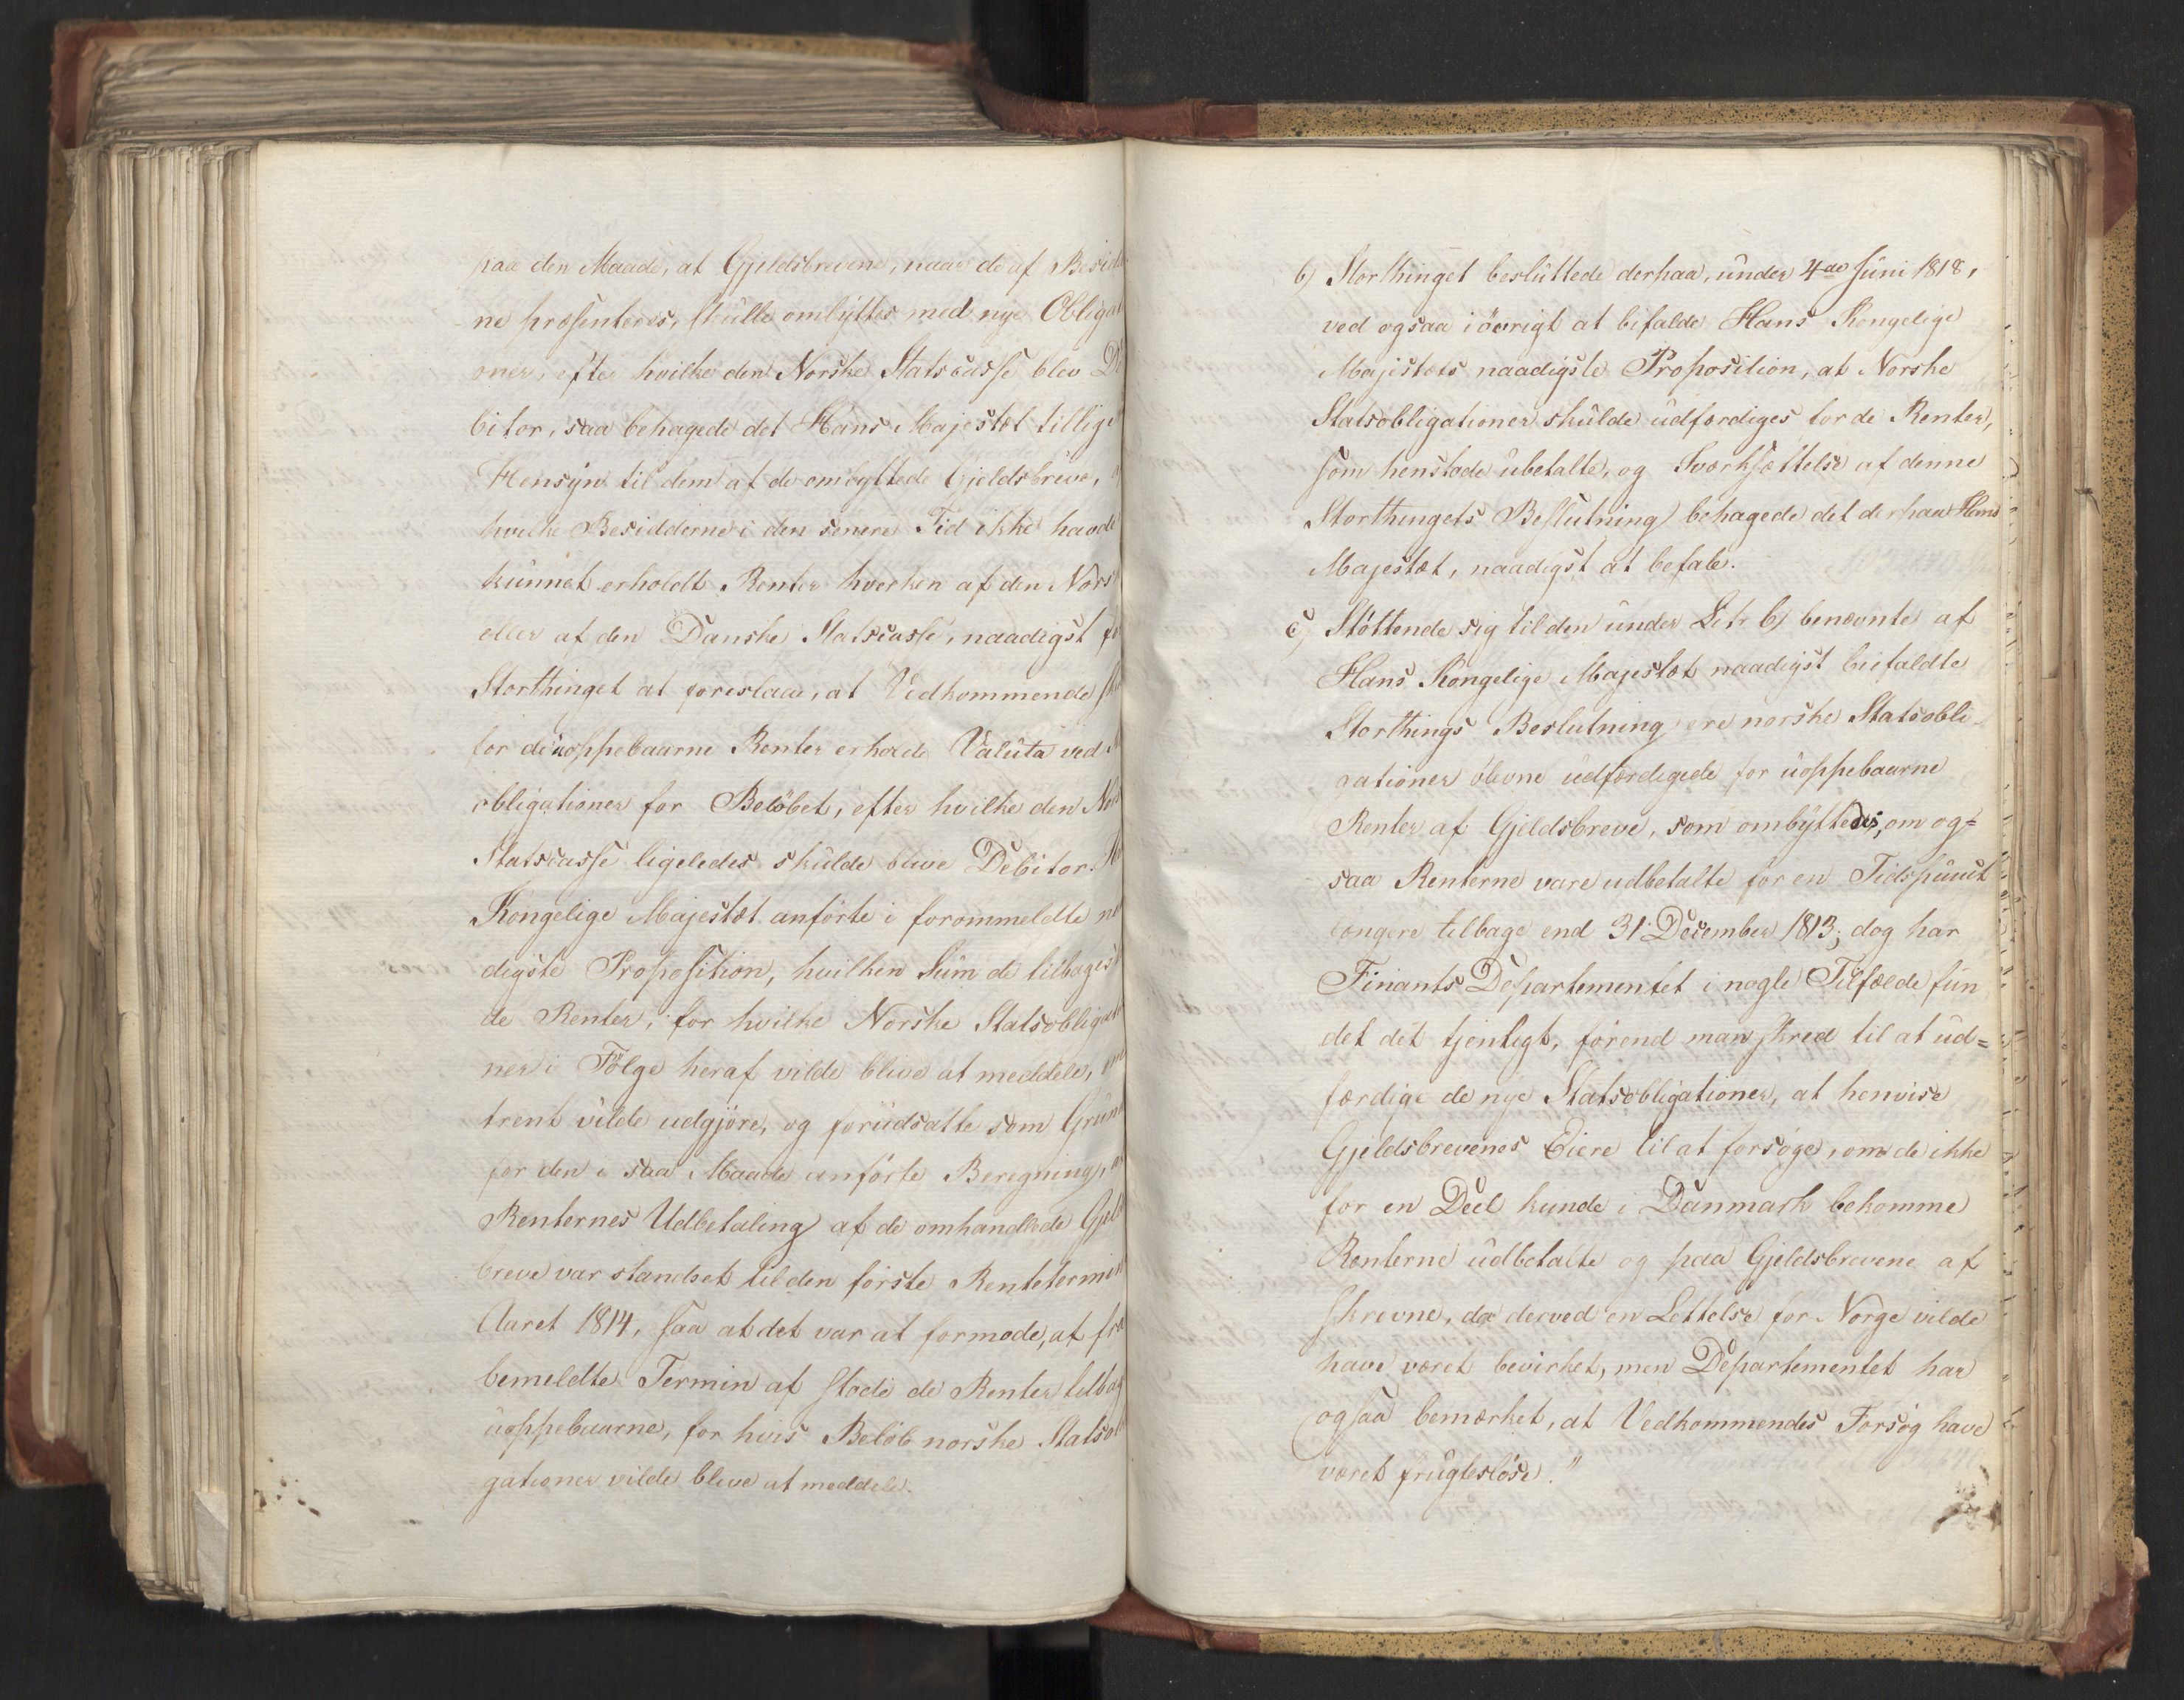 paa den Maade, at Gjeldsbrevene, naar de af Besid
ne præsenteres, skulle ombyttes med nye Obligat
oner, efter hvilke den Norske Statscasse blev De
bitor, saa behagede det Hans Majestæt tillige
Hensyn til dem af de ombyttede Gjeldsbreve,
hvilke Besidderne i den senere Tid ikke havde
kunnet erholdt Renter hverken af den Nors
eller af den Danske Statscasse, naadigst
Storthinget at foreslaae, at Vedkommende
for de uoppebaarne Renter erholde Valuta ved
obligationer for Beløbet, efter hvilke den
Statscasse ligeledes skulde blive Debitor.
Kongelige Majestæt anførte i forommeldte
digste Proposition, hvilken Sum de tilbages
de Renter, for hvilke Norske Statsobligati
ner i Følge heraf vilde blive at meddele,
trent vilde udgjøre, og forudsatte som Grund
for den i saa Maade anførte Beregning,
Renternes Udbetaling af de omhandlede Gjeld
breve var standset til den første Rentetermin
Aaret 1814, saa at det var at formode, at fra
bemeldte Termin af stode de Renter tilbag
uoppebaarne, for hvis Beløb norske Statsob
gationer vilde blive at meddele.
b) Storthinget besluttede derpaa, under 4de Juni 1818,
ved ogsaa i øvrigt at bifalde Hans Kongelige
Majestæts naadigste Proposition, at Norske
Statsobligationer skulde udfærdiges for de Renter,
som henstode ubetalte, og Iværksættelse af denne
Storthingets Beslutning behagede det derpaa Hans
Majestæt, naadigst at befale.
c) Støttende sig til den under Litr b) benævnte af
Hans Kongelige Majestæt naadigst bifaldte
Storthings Beslutning ere norske Statsobli-
gationer blevne udfærdigede for uoppebaarne
Renter af Gjeldsbreve, som ombyttedes, om og=
saa Renterne vare udbetalte for en Tidspunct
længere tilbage end 31 December 1813; dog har
Finants Departementet i nogle Tilfælde fun
det det tjenligt, førend man skred til at ud=
færdige de nye Statsobligationer, at henvise
Gjeldsbrevenes Eiere til at forsøge, om de ikke
for en Deel kunde i Danmark bekomme
Renterne udbetalte og paa Gjeldsbrevene af
skrevne, da derved en Lettelse for Norge vilde
have været bevirket, men Departementet har
ogsaa bemærket, at Vedkommendes Forsøg have
været frugtesløse."